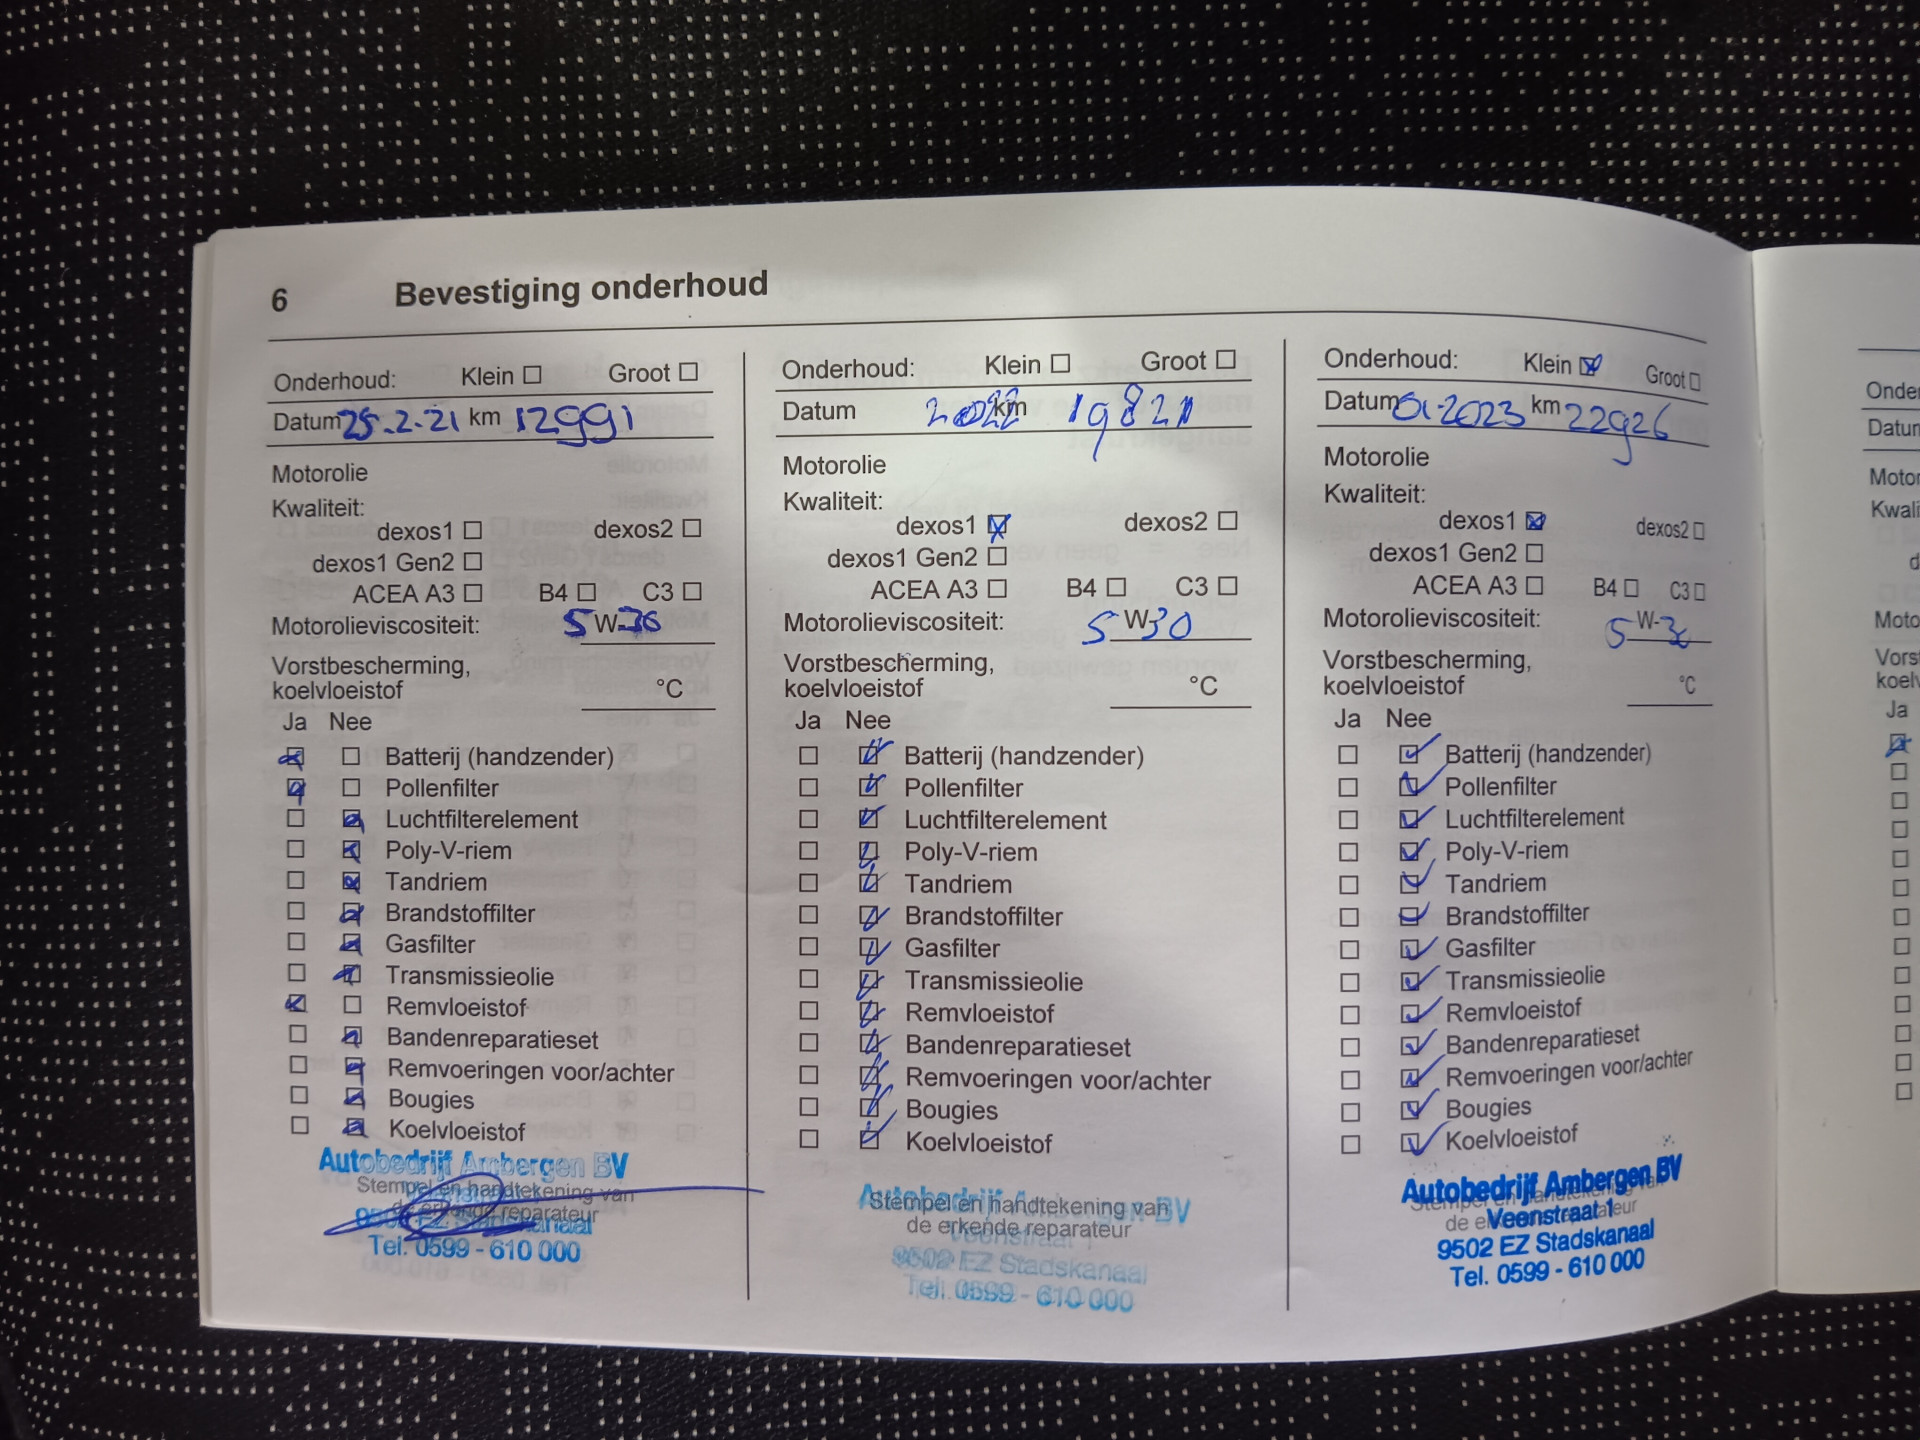 6 Bevestiging onderhoud
Onderhoud: Klein Groot
Datum 25.2.21 km 12991
Motorolie
Kwaliteit:
dexos1 dexos2
dexos1 Gen2
ACEA A3 B4 C3
Motorolieviscositeit: 5 W-30
Vorstbescherming,
koelvloeistof °C
Ja Nee
Batterij (handzender)
Pollenfilter
Luchtfilterelement
Poly-V-riem
Tandriem
Brandstoffilter
Gasfilter
Transmissieolie
Remvloeistof
Bandenreparatieset
Remvoeringen voor/achter
Bougies
Koelvloeistof
Autobedrijf Ambergen BV
Stempel en handtekening van
de erkende reparateur
9502 EZ Stadskanaal
Tel. 0599 - 610 000
Onderhoud: Klein Groot
Datum 2022 km 19821
Motorolie
Kwaliteit:
dexos1 dexos2
dexos1 Gen2
ACEA A3 B4 C3
Motorolieviscositeit: 5 W-30
Vorstbescherming,
koelvloeistof °C
Ja Nee
Batterij (handzender)
Pollenfilter
Luchtfilterelement
Poly-V-riem
Tandriem
Brandstoffilter
Gasfilter
Transmissieolie
Remvloeistof
Bandenreparatieset
Remvoeringen voor/achter
Bougies
Koelvloeistof
Autobedrijf Ambergen BV
Stempel en handtekening van
de erkende reparateur
Veenstraat 1
9502 EZ Stadskanaal
Tel. 0599 - 610 000
Onderhoud: Klein Groot
Datum 01-2023 km 22926
Motorolie
Kwaliteit:
dexos1 dexos2
dexos1 Gen2
ACEA A3 B4 C3
Motorolieviscositeit: 5 W-30
Vorstbescherming,
koelvloeistof °C
Ja Nee
Batterij (handzender)
Pollenfilter
Luchtfilterelement
Poly-V-riem
Tandriem
Brandstoffilter
Gasfilter
Transmissieolie
Remvloeistof
Bandenreparatieset
Remvoeringen voor/achter
Bougies
Koelvloeistof
Autobedrijf Ambergen BV
Veenstraat 1
9502 EZ Stadskanaal
Tel. 0599 - 610 000
Ja